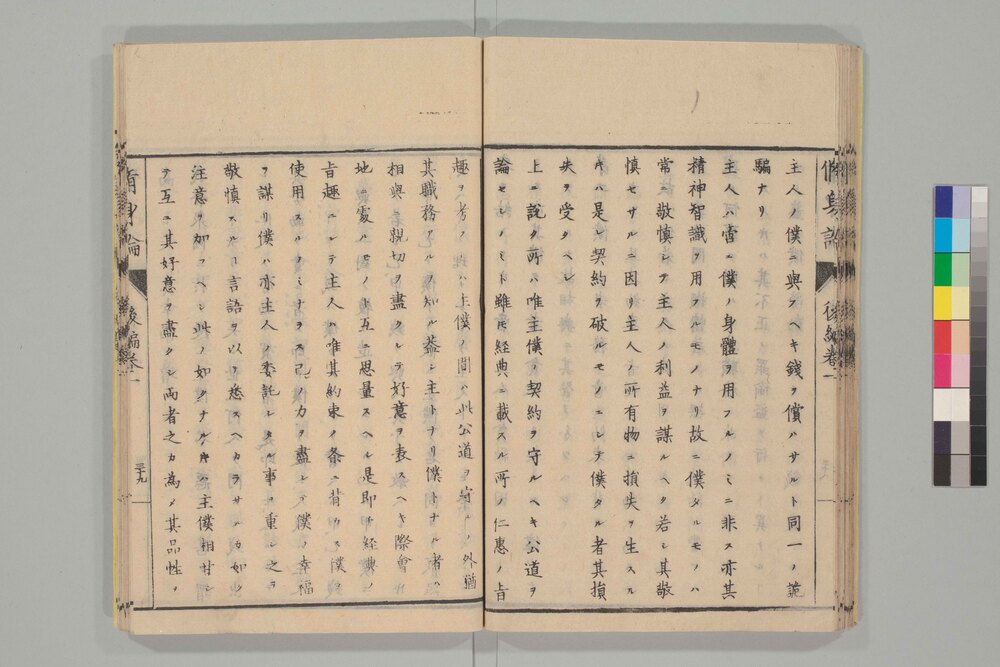 脩身論 後編卷一
主人ノ僕ニ與フヘキ錢ヲ償ハサルト同一ノ詭
騙ナリ
主人ハ啻ニ僕ノ身體ヲ用フルノミニ非ス亦其
精神智識ヲ用フルモノナリ故ニ僕タルモノハ
常ニ敬慎シテ主人ノ利益ヲ謀ルヘク若シ其敬
慎セサルニ因リ主人ノ所有物ニ損失ヲ生スル
ハ是レ契約ヲ破ルモノニシテ僕タル者其損
失ヲ受クヘシ
上ニ説ク所ハ唯主僕ノ契約ヲ守ルヘキ公道ヲ
論セシノミト雖𪜈經典ニ載スル所ノ仁惠ノ旨
趣ヲ考フル時ハ主僕ノ間ハ此公道ヲ守ルノ外猶
其職務アルヲ知ル蓋シ主トナリ僕トナル者ハ
相與ニ親切ヲ盡クシテ好意ヲ表スヘキ際會ノ
地ニ處ルモノ故互ニ思量スヘシ是即チ經典ノ
旨趣ニシテ主人ハ唯其約束ノ条ニ背カス僕ヲ
使用スルノミナラス己ノ力ヲ盡シテ僕ノ幸福
ヲ謀リ僕ハ亦主人ノ委託シタル事ヲ重シ之ヲ
敬慎スルヿ言語ヲ以テ悉スヘカラサルカ如ク
注意ヲ加フヘシ此ノ如クナルキハ主僕相對シ
テ互ニ其好意ヲ盡クシ両者之カ為メ其品性ヲ
脩身論 後編卷一
三十九